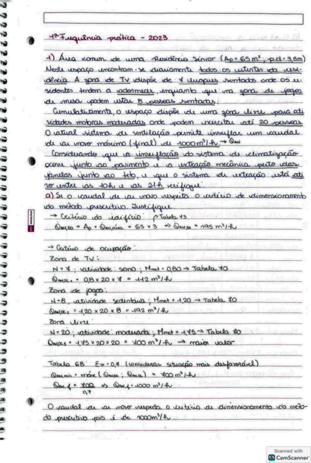 1ª Frequência prática - 2023
1) Área comum de uma Residência Sénior (Ap = 65 m², pd = 3,8m)
Neste espaço encontram-se diariamente todos os utentes da resi-
dência. A zona de TV dispõe de 7 lugares sentados onde os re-
sidentes tendem a adormecer, enquanto que na zona de jogos
de mesa podem estar 8 pessoas sentadas.
Cumulativamente, o espaço dispõe de uma zona livre para ati-
vidades motoras moderadas onde podem exercitar até 20 pessoas.
O atual sistema de ventilação permite insuflar um caudal
de ar novo máximo (final) de 1000 m³/h → Qanf
Considerando que a insuflação do sistema de climatização
ocorre junto ao pavimento e a extração mecânica pelas
janelas junto ao teto, e que o sistema de extração está ati-
vo entre as 10h e as 21h, verifique
a) Se o caudal de ar novo respeita o critério de dimensionamento
do método prescritivo. Justifique
→ Critério do edifício
= Ap × = 65 × 3 ⇒ = 195 m³/h
→ Critério de ocupação:
Zona de TV:
N = 7; atividade: sono; Mmet = 0,80 → Tabela 10
= 0,8 × 20 × 7 = 112 m³/h
Zona de jogos:
N = 8, atividade sedentária; Mmet = 1,20 → Tabela 10
= 1,20 × 20 × 8 = 192 m³/h
Zona livre
N = 20; atividade moderada; Mmet = 1,75 → Tabela 10
= 1,75 × 20 × 20 = 700 m³/h → maior valor
Tabela 6B Ev = 0,7 (considerar situação mais desfavorável)
= máx ( ; ) = 700 m³/h
= 700/0,7 ⇔ = 1000 m³/h
O caudal de ar novo respeita o critério de dimensionamento do méto-
do prescritivo pois é de 1000 m³/h.
Scanned with
CamScanner